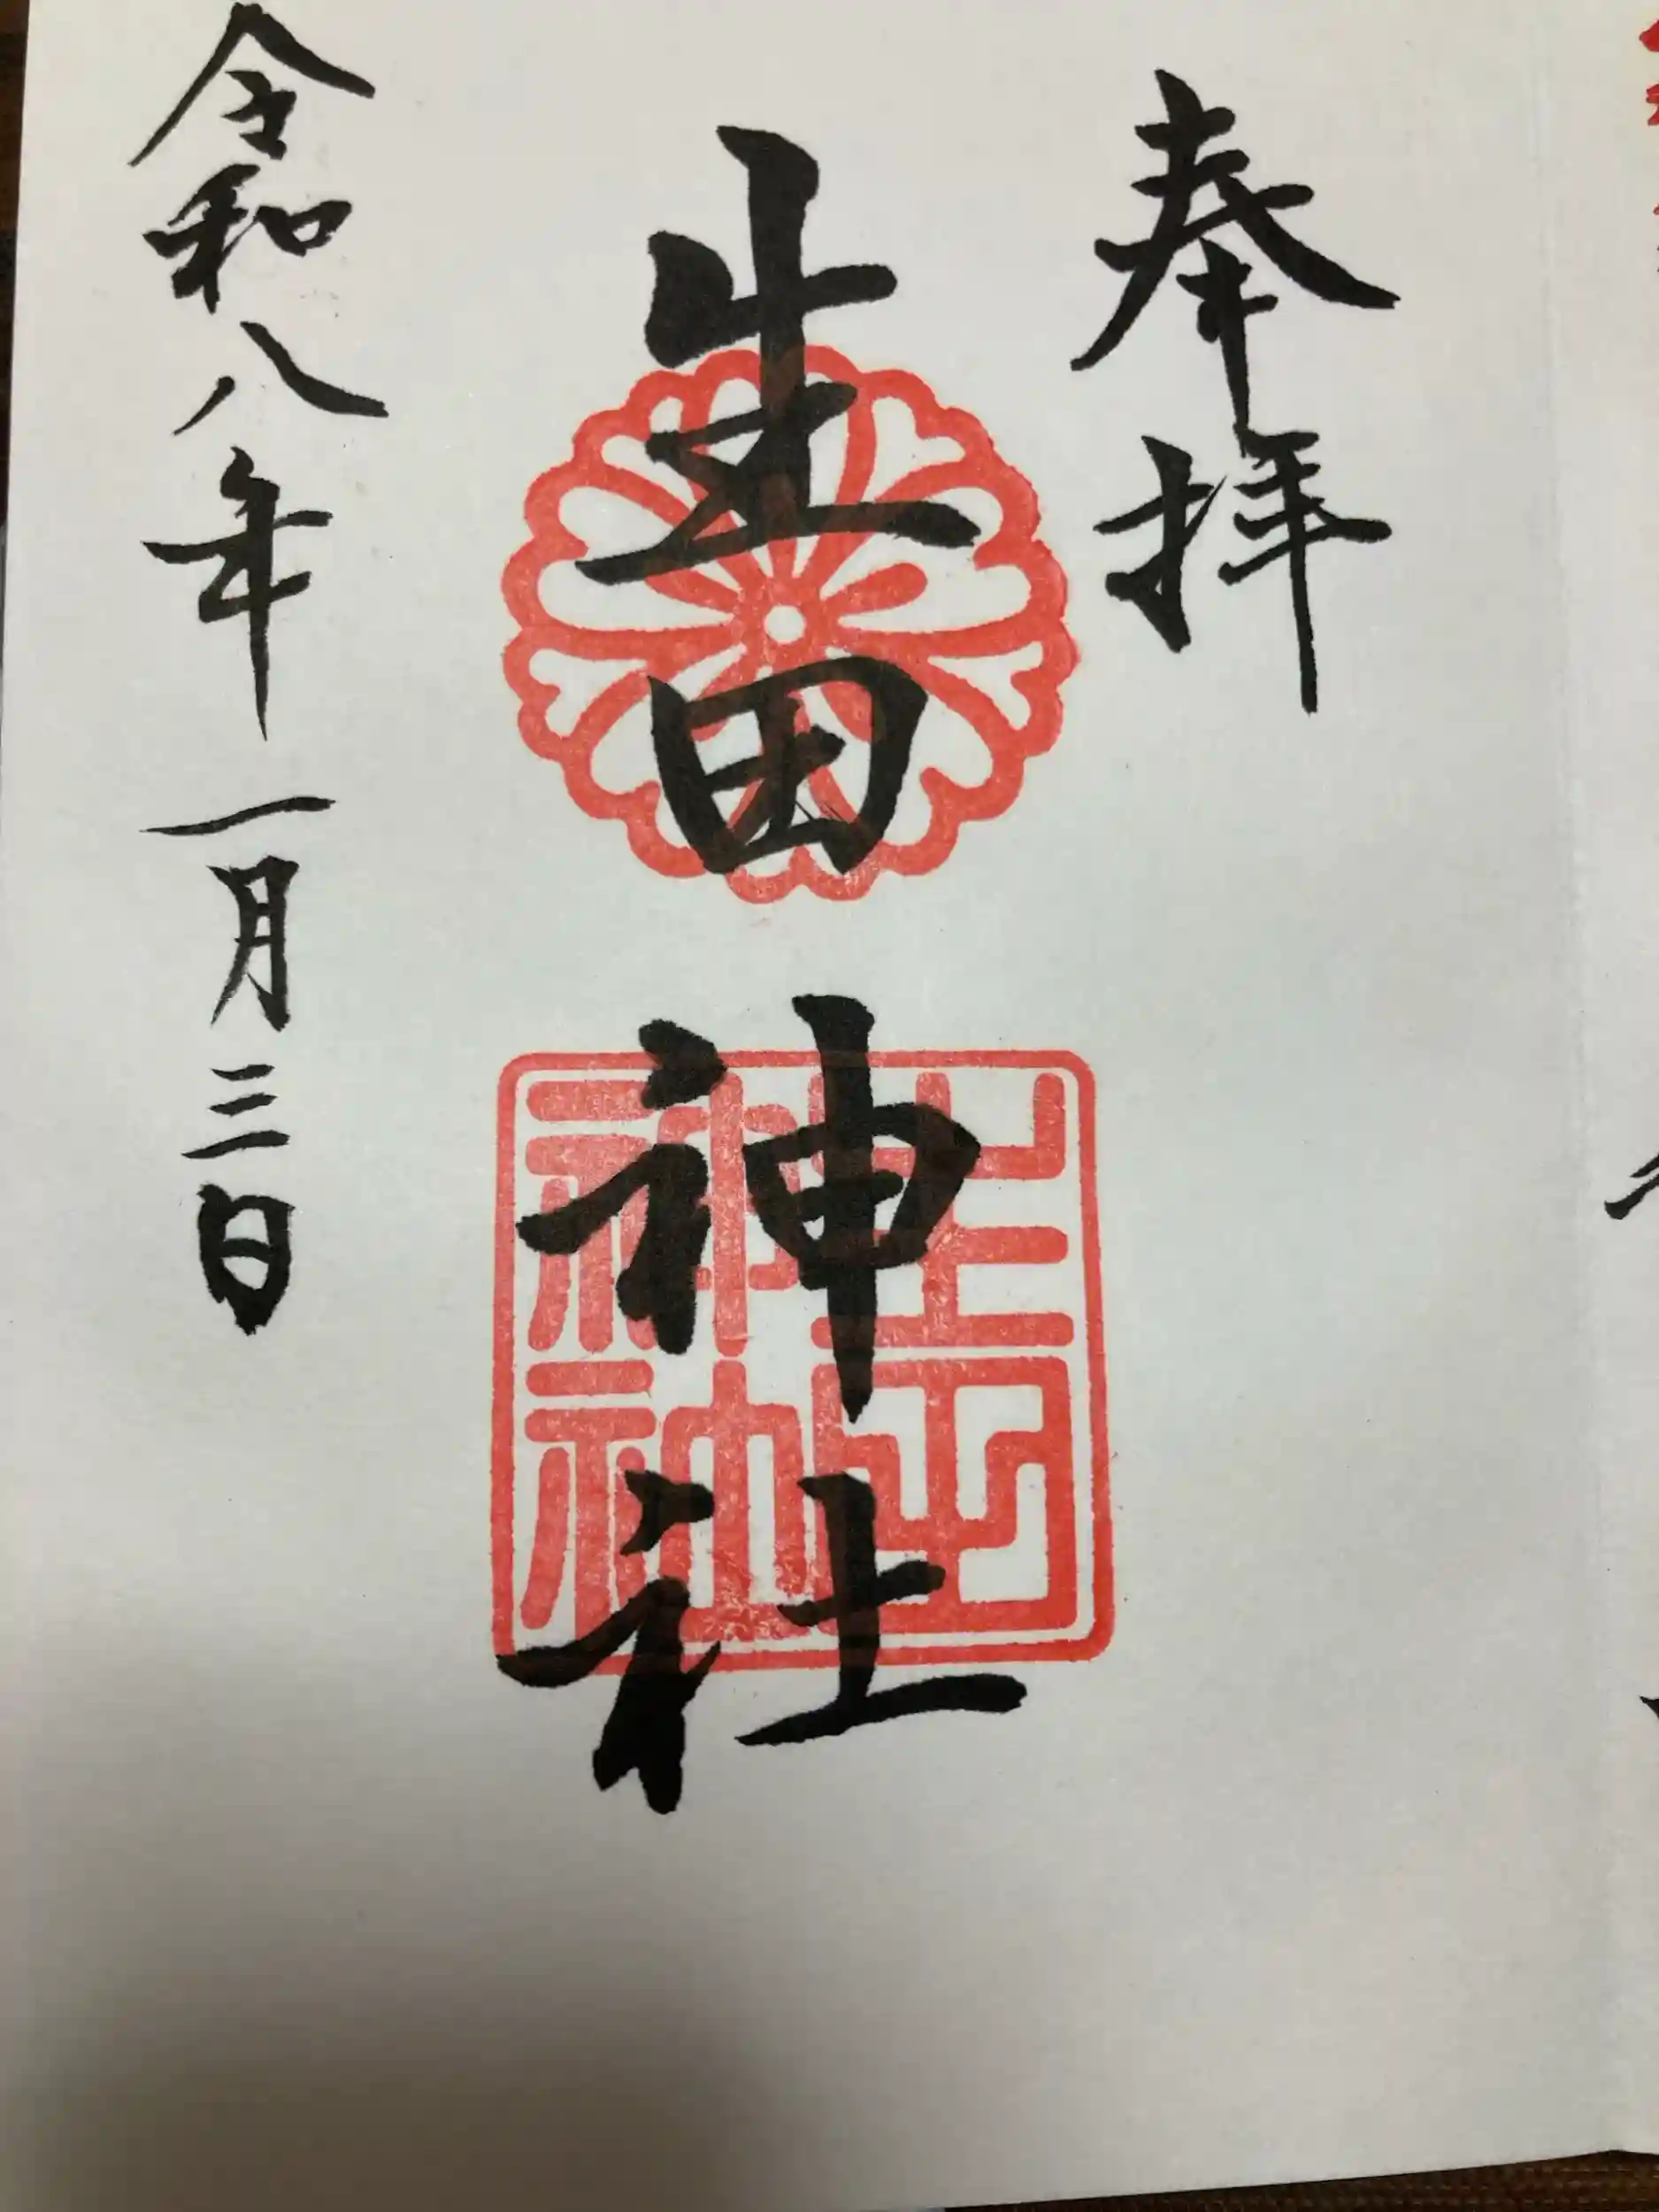 奉拝
生田神社
生田神社
令和八年一月三日